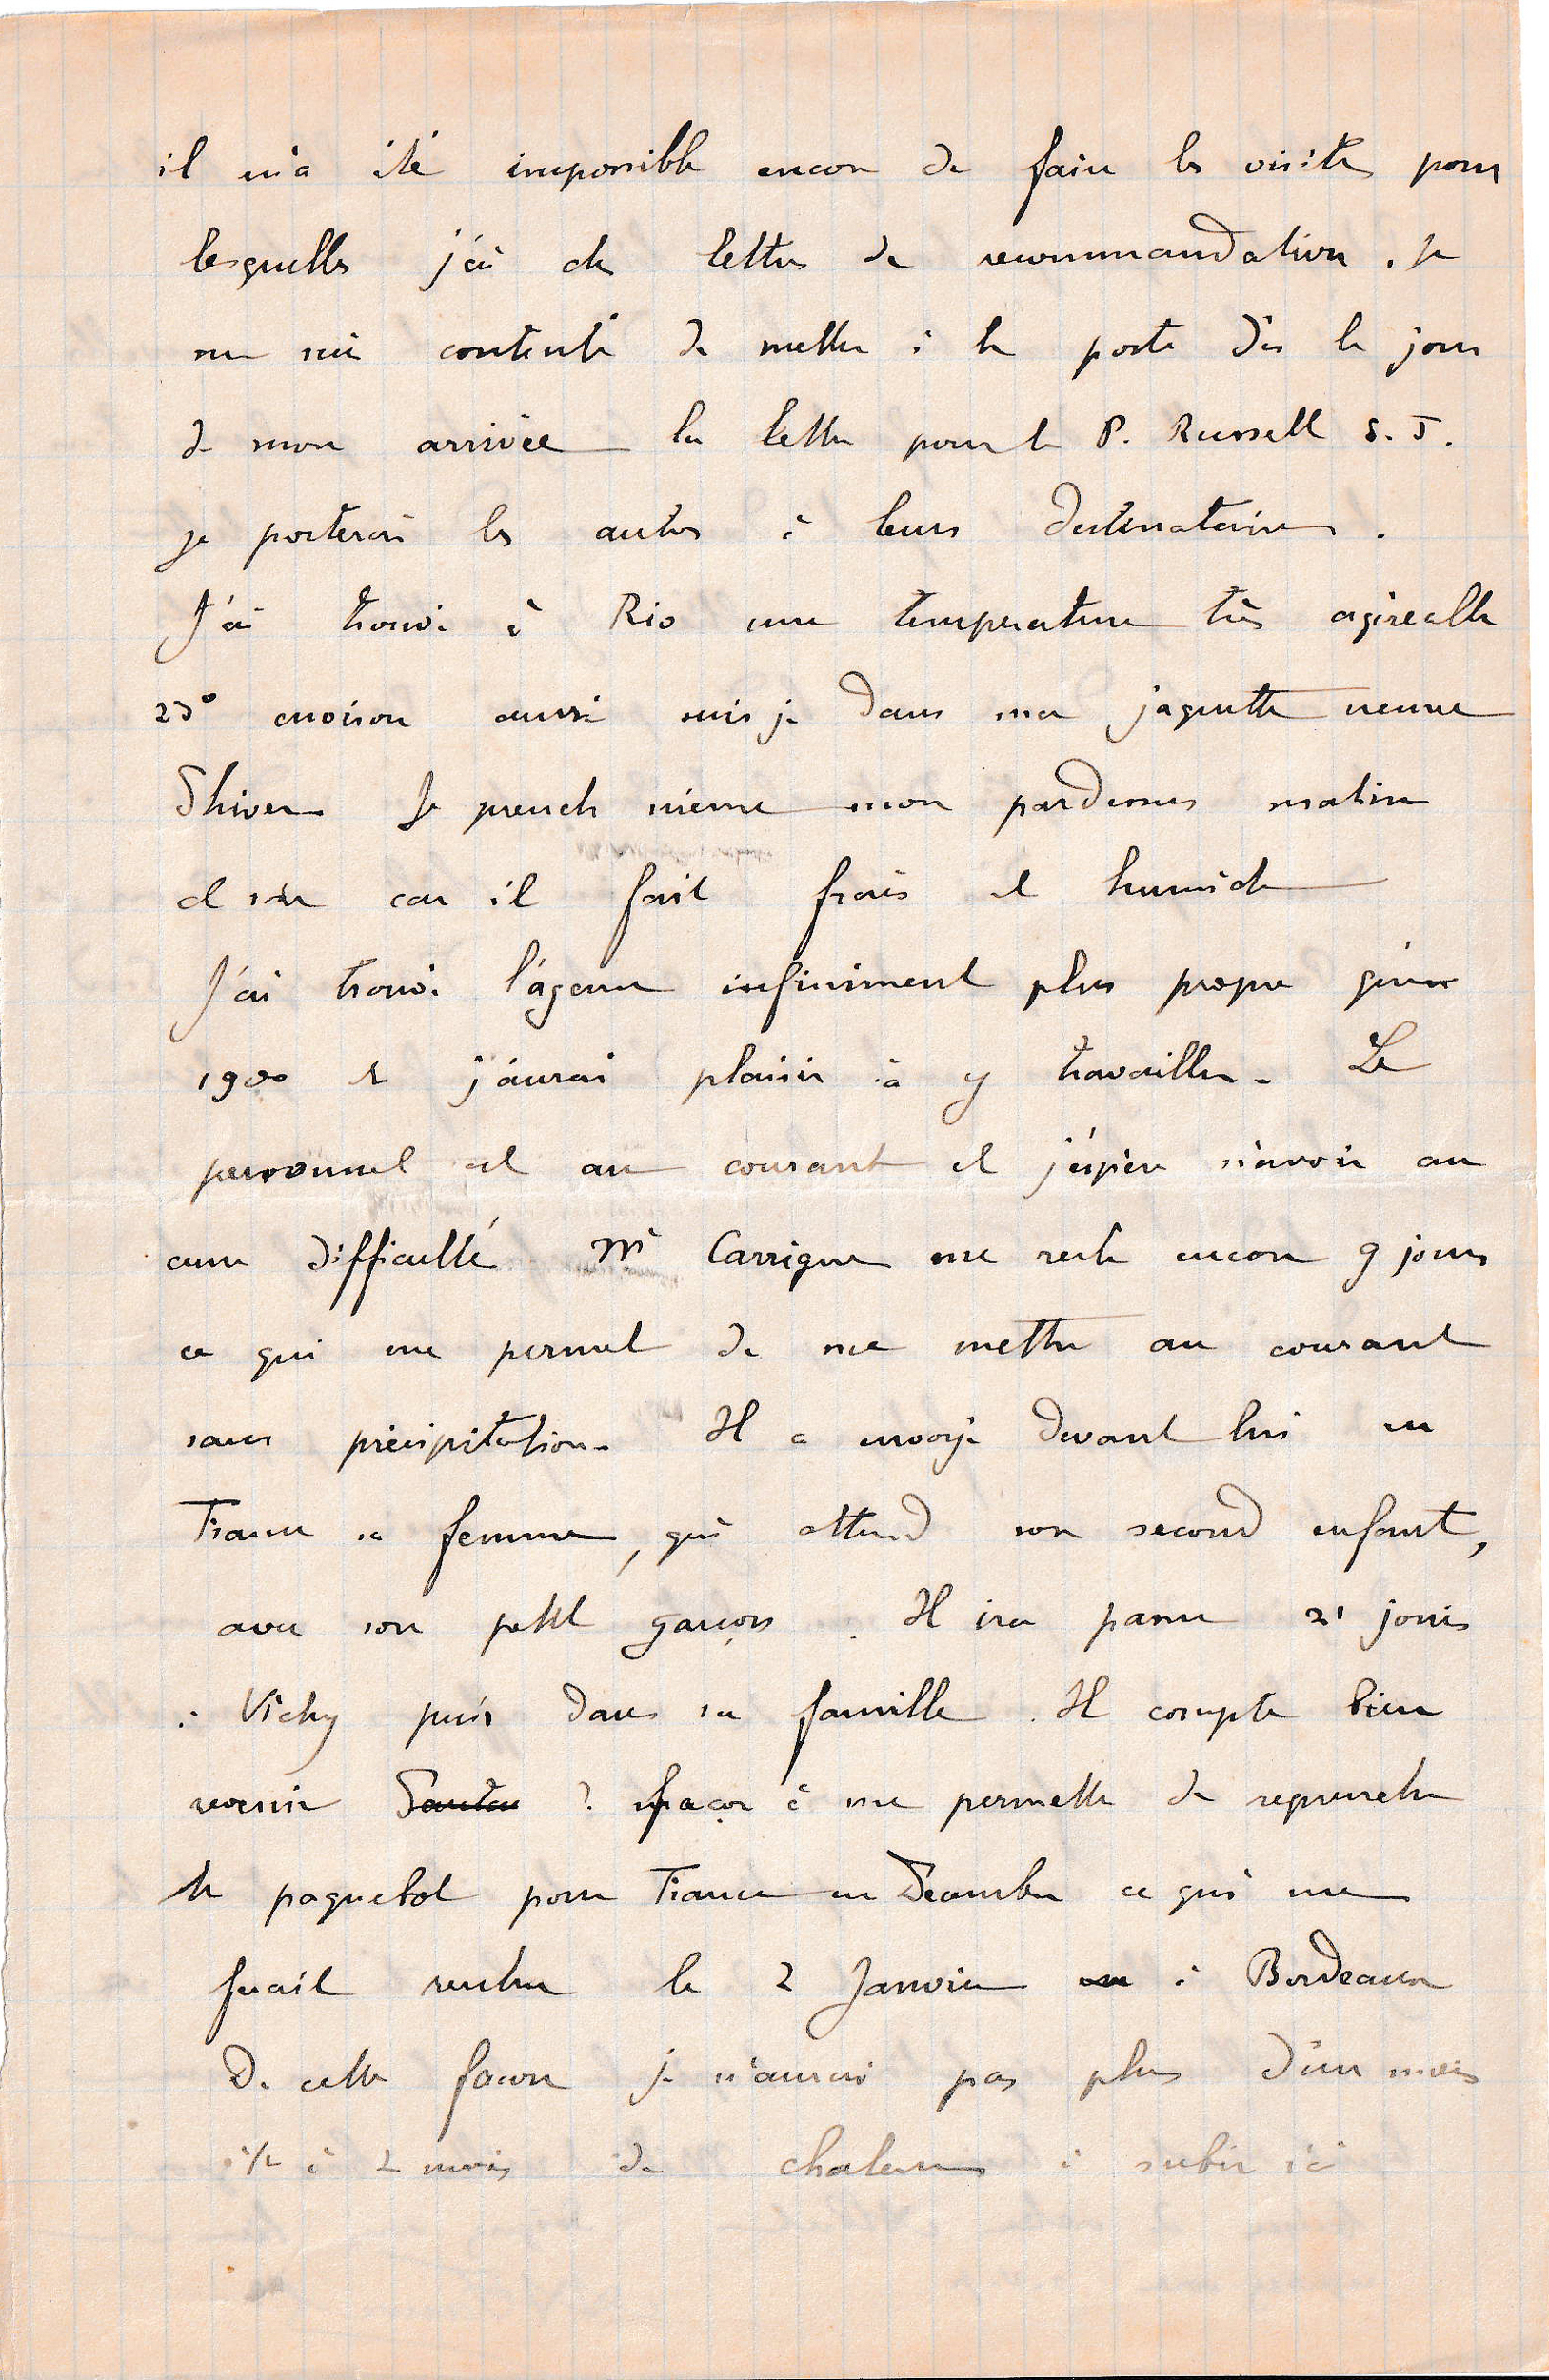 il m'a été impossible encore de faire les visites pour
lesquelles j'ai des lettres de recommandation. Je
me suis contenté de mettre à la poste dès le jour
de mon arrivée la lettre pour le P. Russell S. J.
je porterai les autres à leurs destinataires.
J'ai trouvé à Rio une température très agréable
23° environ aussi suis je dans ma jaquette neuve
d'hiver Je prends même mon pardessus matin
et soir car il fait frais et humide
J'ai trouvé l'agence infiniment plus propre qu'en
1900 et j'aurai plaisir à y travailler. Le
personnel est au courant et j'espère n'avoir au
cune difficulté Mr Carrigue me reste encore 9 jours
ce qui me permet de me mettre au courant
sans précipitation. Il a envoyé devant lui en
France sa femme, qui attend son second enfant,
avec son petit garçon. Il ira passer 21 jours
à Vichy puis dans sa famille. Il compte bien
revenir de façon à me permettre de reprendre
le paquebot pour France en Décembre ce qui me
ferait rentrer le 2 Janvier à Bordeaux
De cette façon je n'aurai pas plus d'un mois
1/2 à 2 mois de chaleurs à subir ici